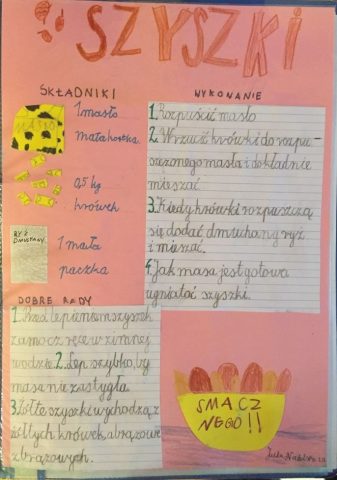 SZYSZKI
SKŁADNIKI
MASŁO
1 masło
mała kostka
0,5 kg
krówek
RYŻ
DMUCHANY
1 mała
paczka
WYKONANIE
1. Rozpuścić masło
2. Wrzuć krówki do rozpu-
szczonego masła i dokładnie
mieszać.
3. Kiedy krówki rozpuszczą
się dodać dmuchany ryż
i mieszać.
4. Jak masa jest gotowa
ugniatać szyszki.
DOBRE RADY
1. Przed lepieniem szyszek
zamocz ręce w zimnej
wodzie. 2. Lep szybko, by
masa nie zastygła.
3. Żółte szyszki wychodzą z
żółtych krówek, a brązowe
z brązowych.
SMACZ
NEGO!!
Julia